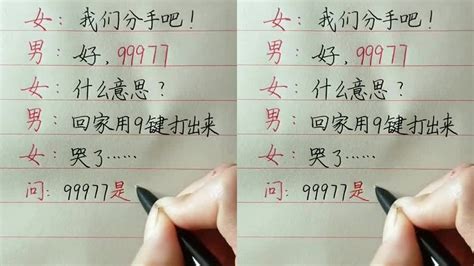 女：我们分手吧！
男：好，99977
女：什么意思？
男：回家用9键打出来
女：哭了……
问：99977是
女：我们分手吧！
男：好，99977
女：什么意思？
男：回家用9键打出来
女：哭了……
问：99977是